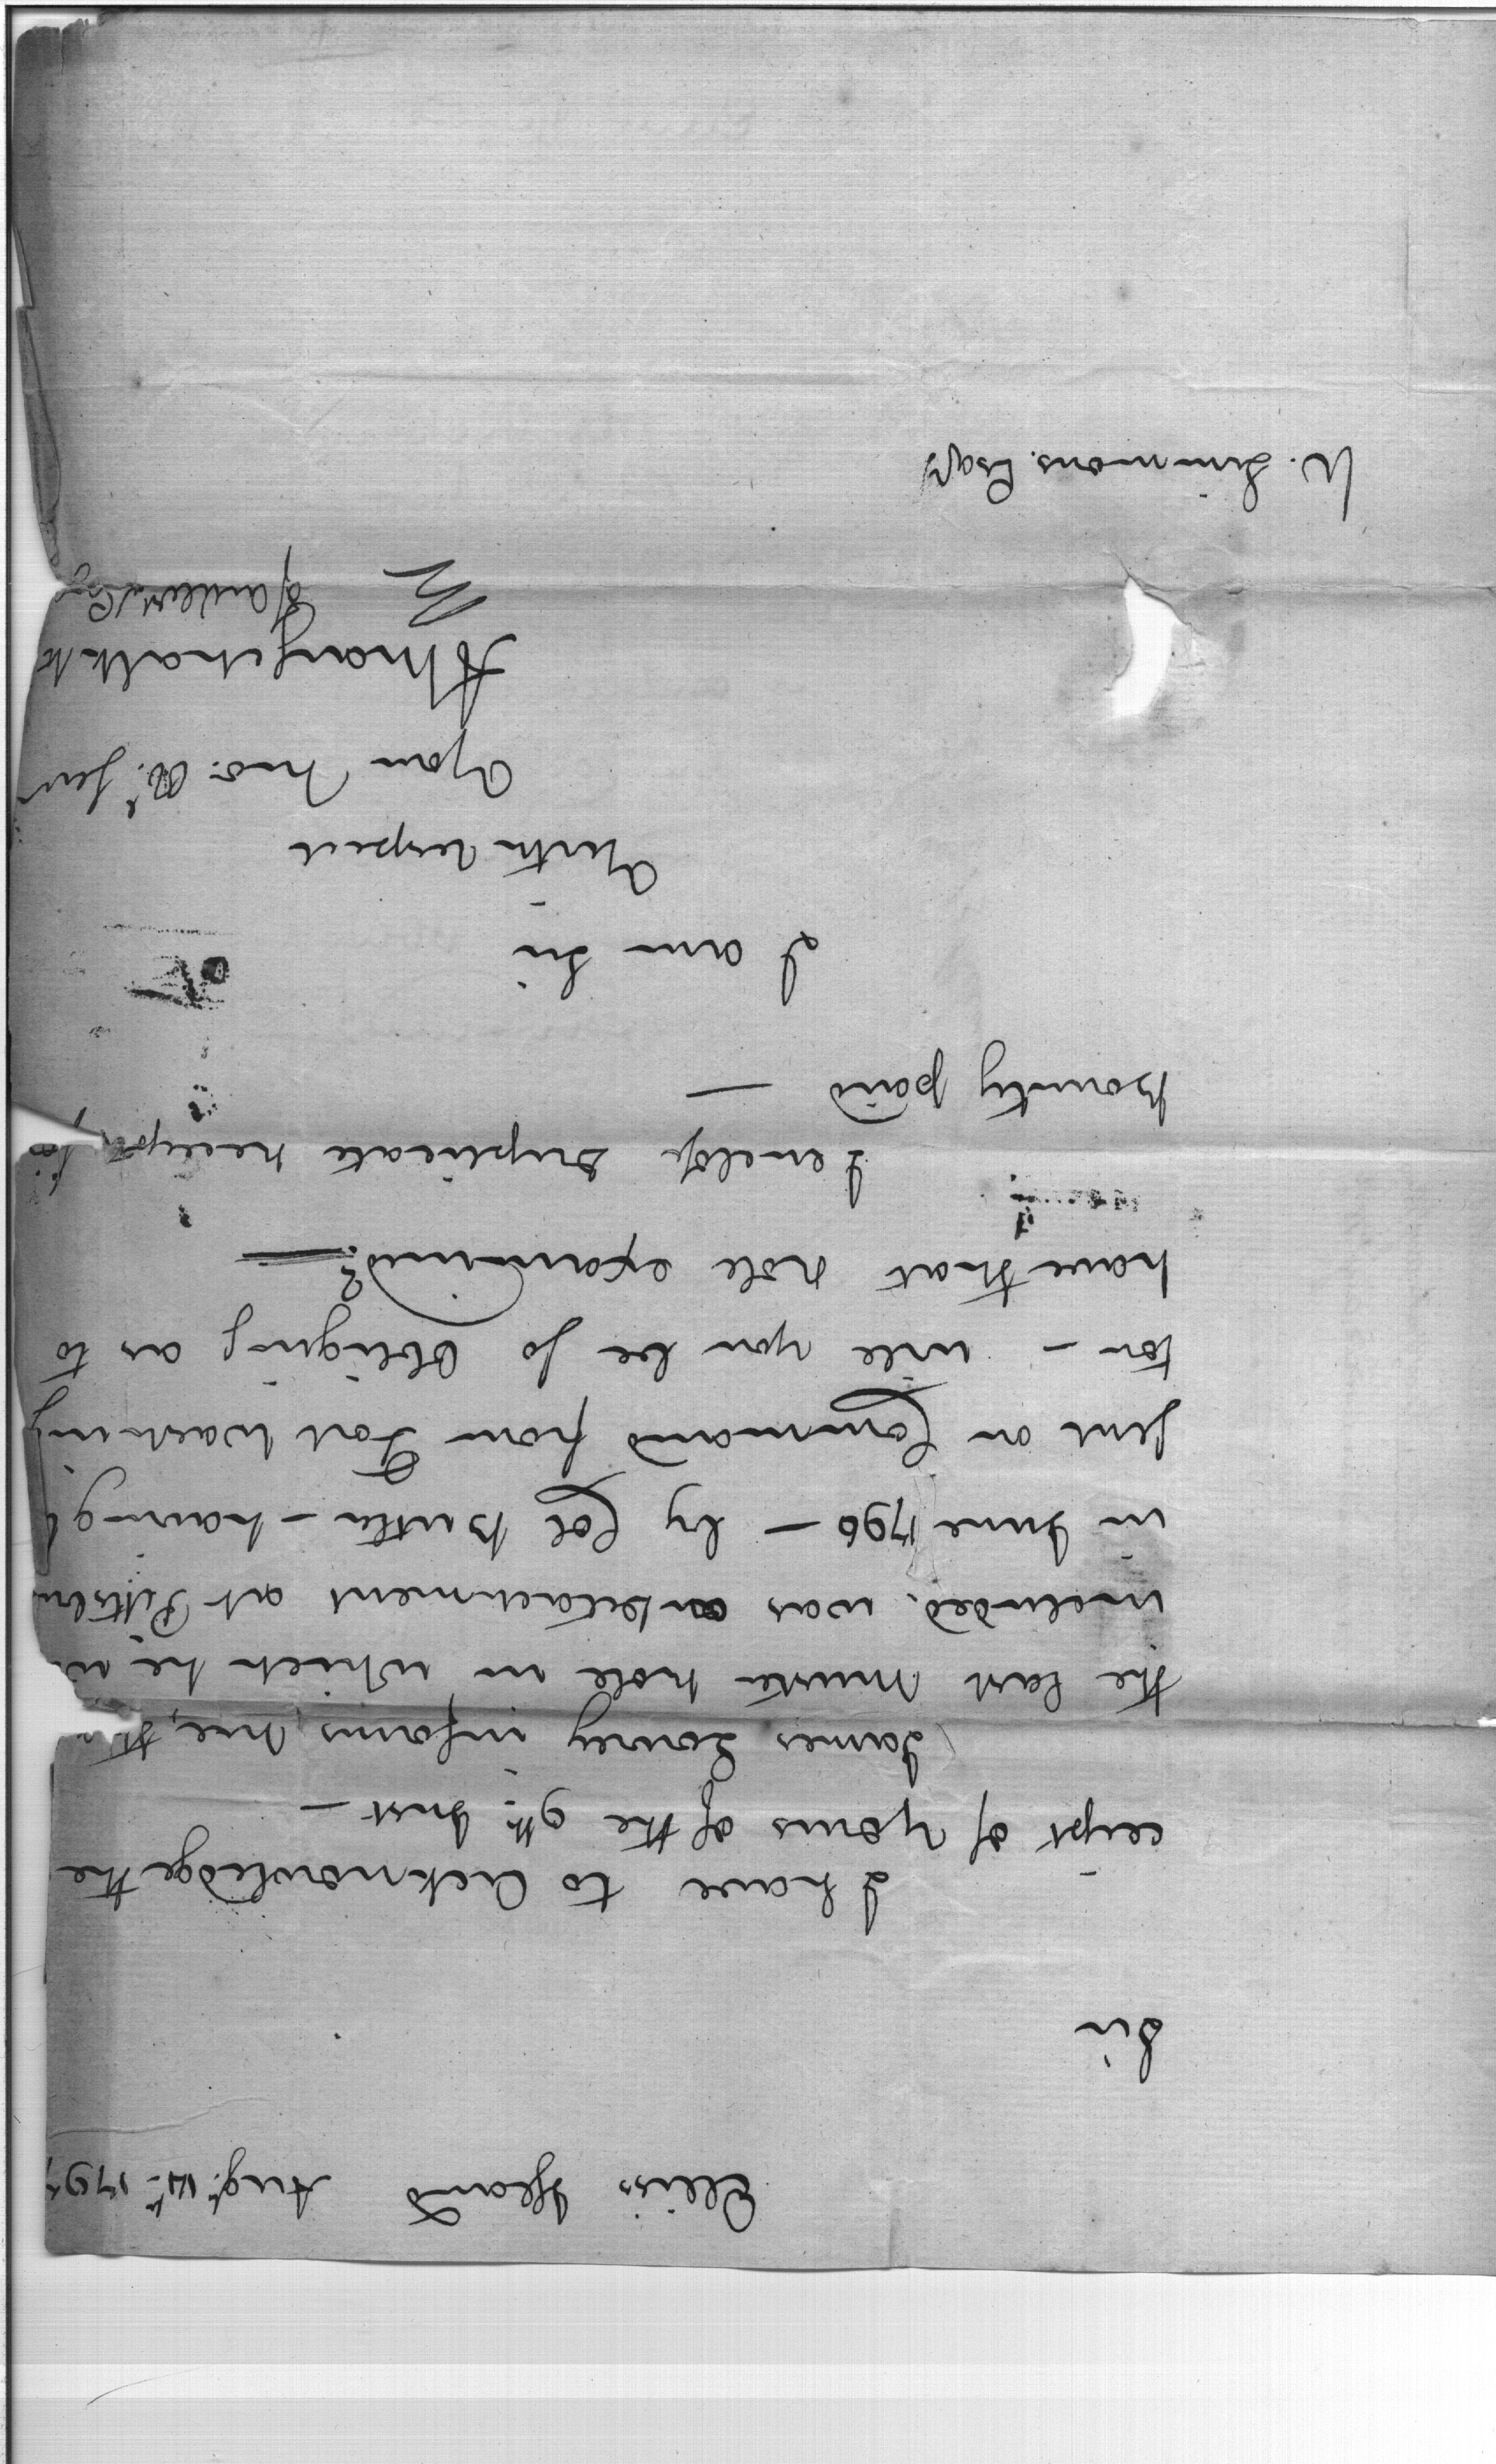 Elliss Island Augt. 14th 1797
Sir
I have to Acknowledge the
ceipt of yours of the 9th Inst —
James Lowrey informs me, that
the last muster role in which he was
included. was a detachment at Pittsbu
in June 1796 — by Col Butler — having b
sent on Command from Fort Washing
ton — will you be so Obliging as to
have that role examined? —
I enclose Duplicate receipts for
bounty paid —
I am Sir
With respect
Your mo. Obt. Ser
A Marschalk
Lt
W. Simmons. Esqr